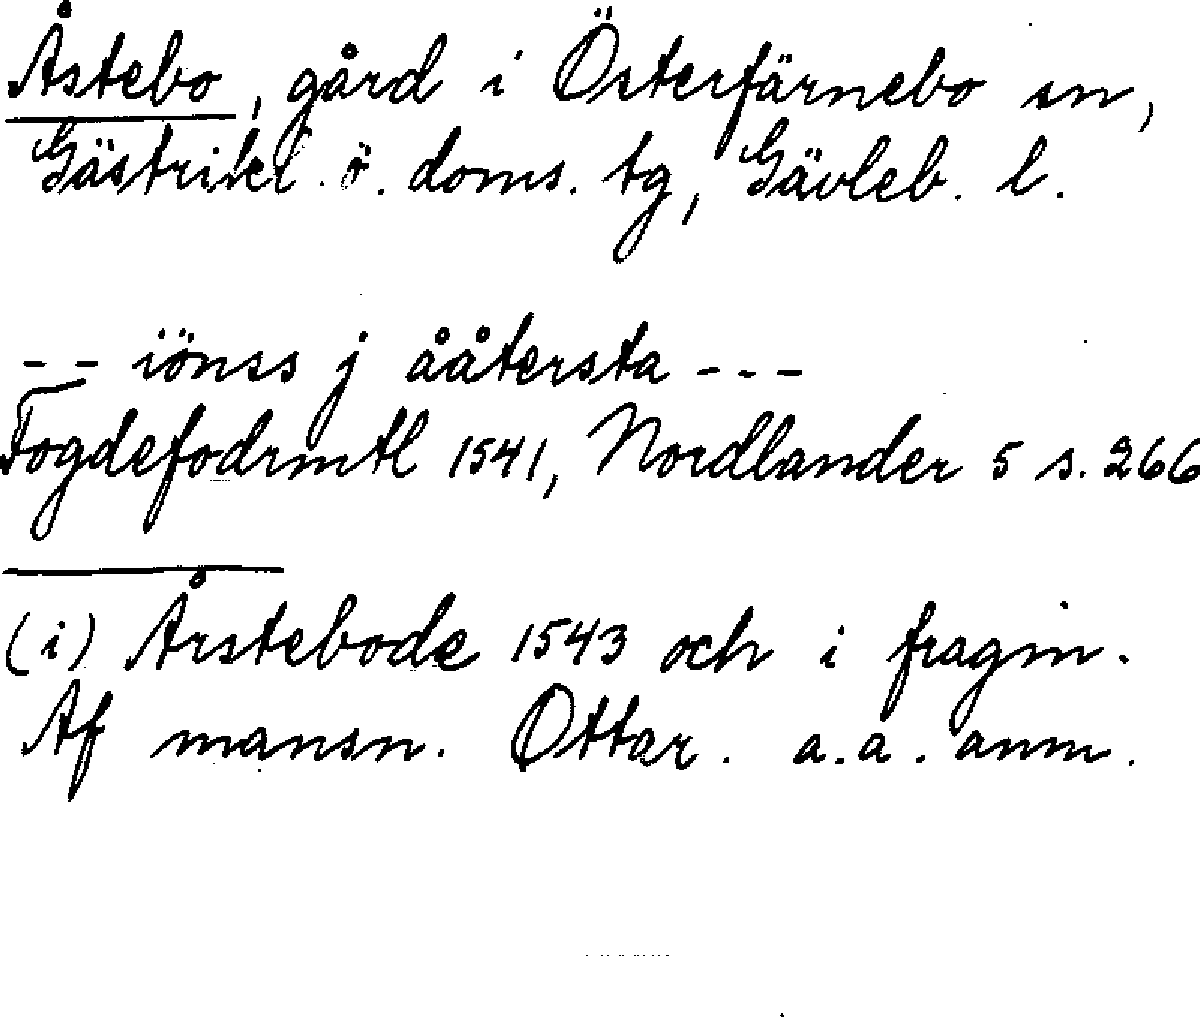 Åstebo, gård i Österfärnebo sn,
Gästrikl. ö. doms. tg, Gävleb. l.
-- iönss j ååtersta ---
Fogdefodrmtl 1541, Nordlander 5 s. 266
(i) Årstebode 1543 och i fragm.
Af mansn. Ottar. a.a. anm.